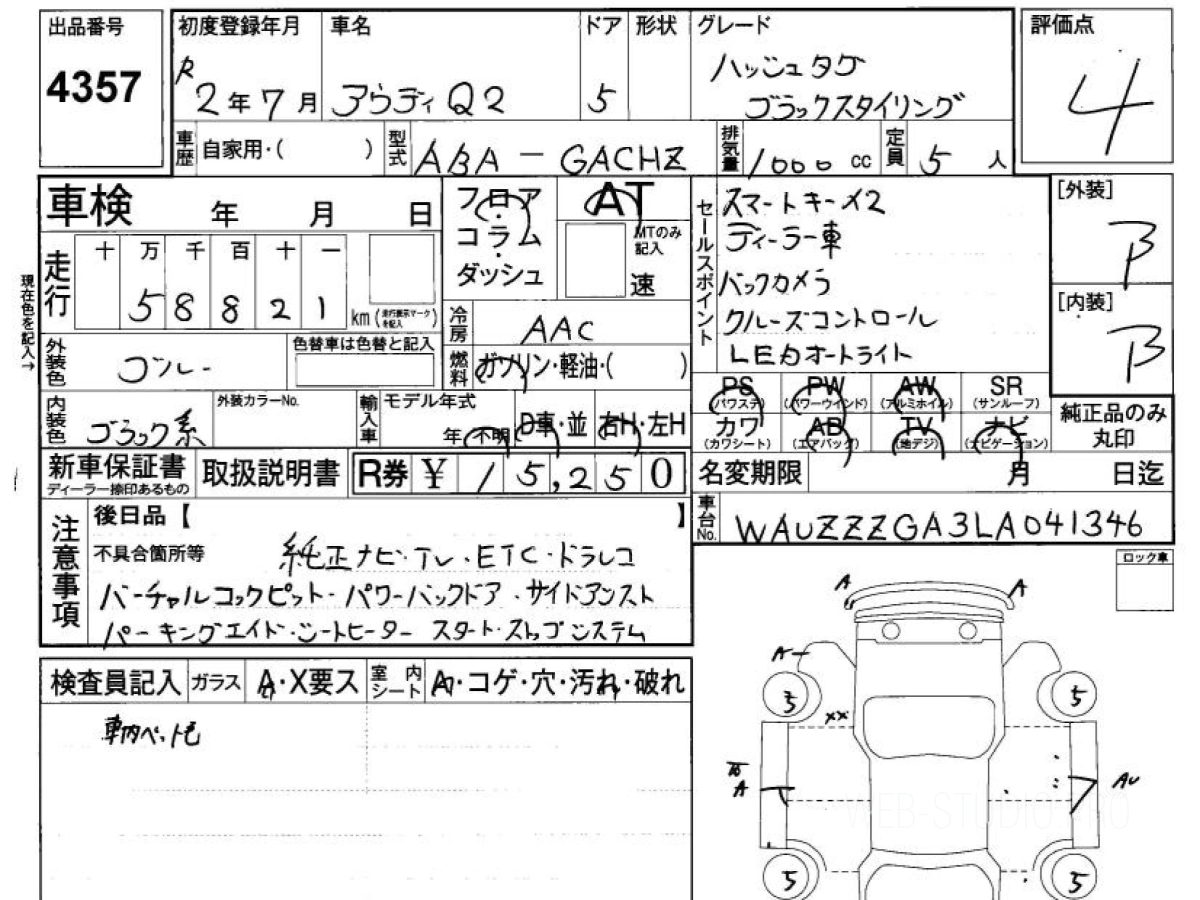 出品番号
4357
初度登録年月 車名 ドア 形状 グレード
R2年7月 アウディQ2 5 ハッシュタグ
ブラックスタイリング
評価点
4
車歴 自家用・( ) 型式 ABA-GACHZ 排気量 1000cc 定員 5人
車検 年 月 日
フロア・コラム・ダッシュ
AT
MTのみ記入
速
セールスポイント
スマートキーX2
ディーラー車
バックカメラ
クルーズコントロール
LEDオートライト
[外装]
B
[内装]
B
現在色を記入→
走行 十 万 千 百 十 一
5 8 8 2 1 km (走行表示マークを記入)
冷房 AAC
燃料 ガソリン・軽油・( )
外装色 ブルー 色替車は色替と記入
内装色 ブラック系 外装カラーNo.
輸入車 モデル年式
年・不明 D車・並 右H・左H
PS (パワステ) PW (パワーウインド) AW (アルミホイル) SR (サンルーフ)
カワ (カワシート) AB (エアバッグ) TV (地デジ) ナビ (ナビゲーション)
純正品のみ
丸印
新車保証書 ディーラー捺印あるもの 取扱説明書 R券 ¥ 15,250
名変期限 月 日迄
車台No. WAUZZZGA3LA041346
注意事項
後日品【 】
不具合箇所等 純正ナビ・TV・ETC・ドラレコ
バーチャルコックピット・パワーバックドア・サイドアシスト
パーキングエイド・シートヒーター スタート・ストップシステム
検査員記入 ガラス A・X要ス 室内シート A・コゲ・穴・汚れ・破れ
車内ペット毛
ロック車
A A
A
3 5
XX
A
5 5
WEB-STUDIO.PRO